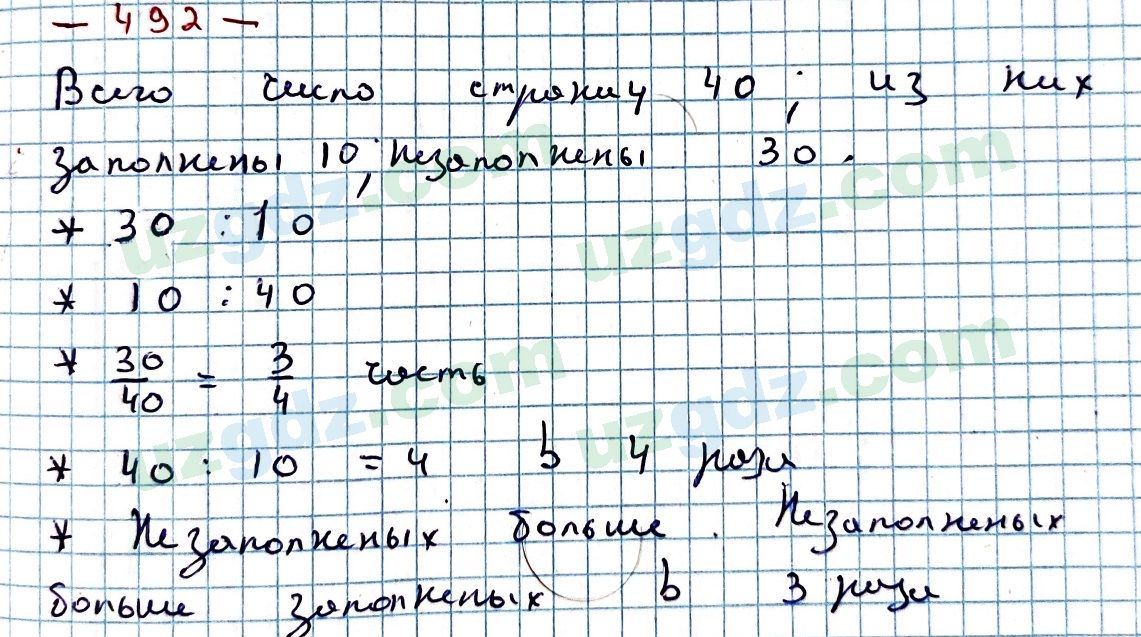 — 492 —
Всего число страниц 40; из них
заполнены 10; незаполнены 30.
* 30 : 10
* 10 : 40
* 30/40 = 3/4 часть
* 40 : 10 = 4 в 4 раза
* Незаполненых больше. Незаполненых
больше заполненых в 3 раза
uzgdz.com
uzgdz.com
uzgdz.com
uzgdz.com